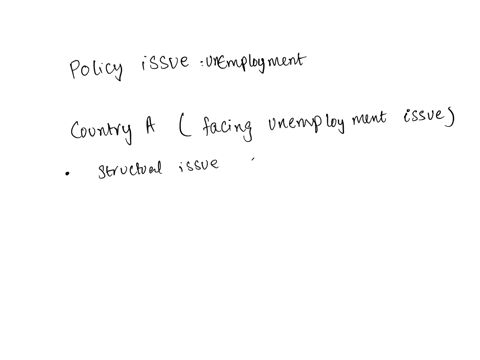 Policy issue : unemployment
Country A ( facing unemployment issue)
• structual issue